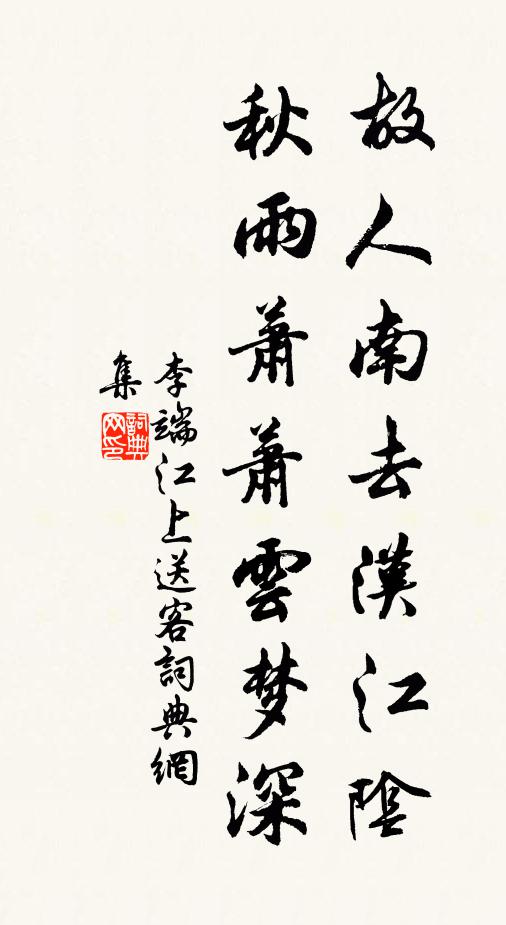 故人南去漢江陰
秋雨蕭蕭雲梦深
李端江上送客詞典網
集
詞典
网印